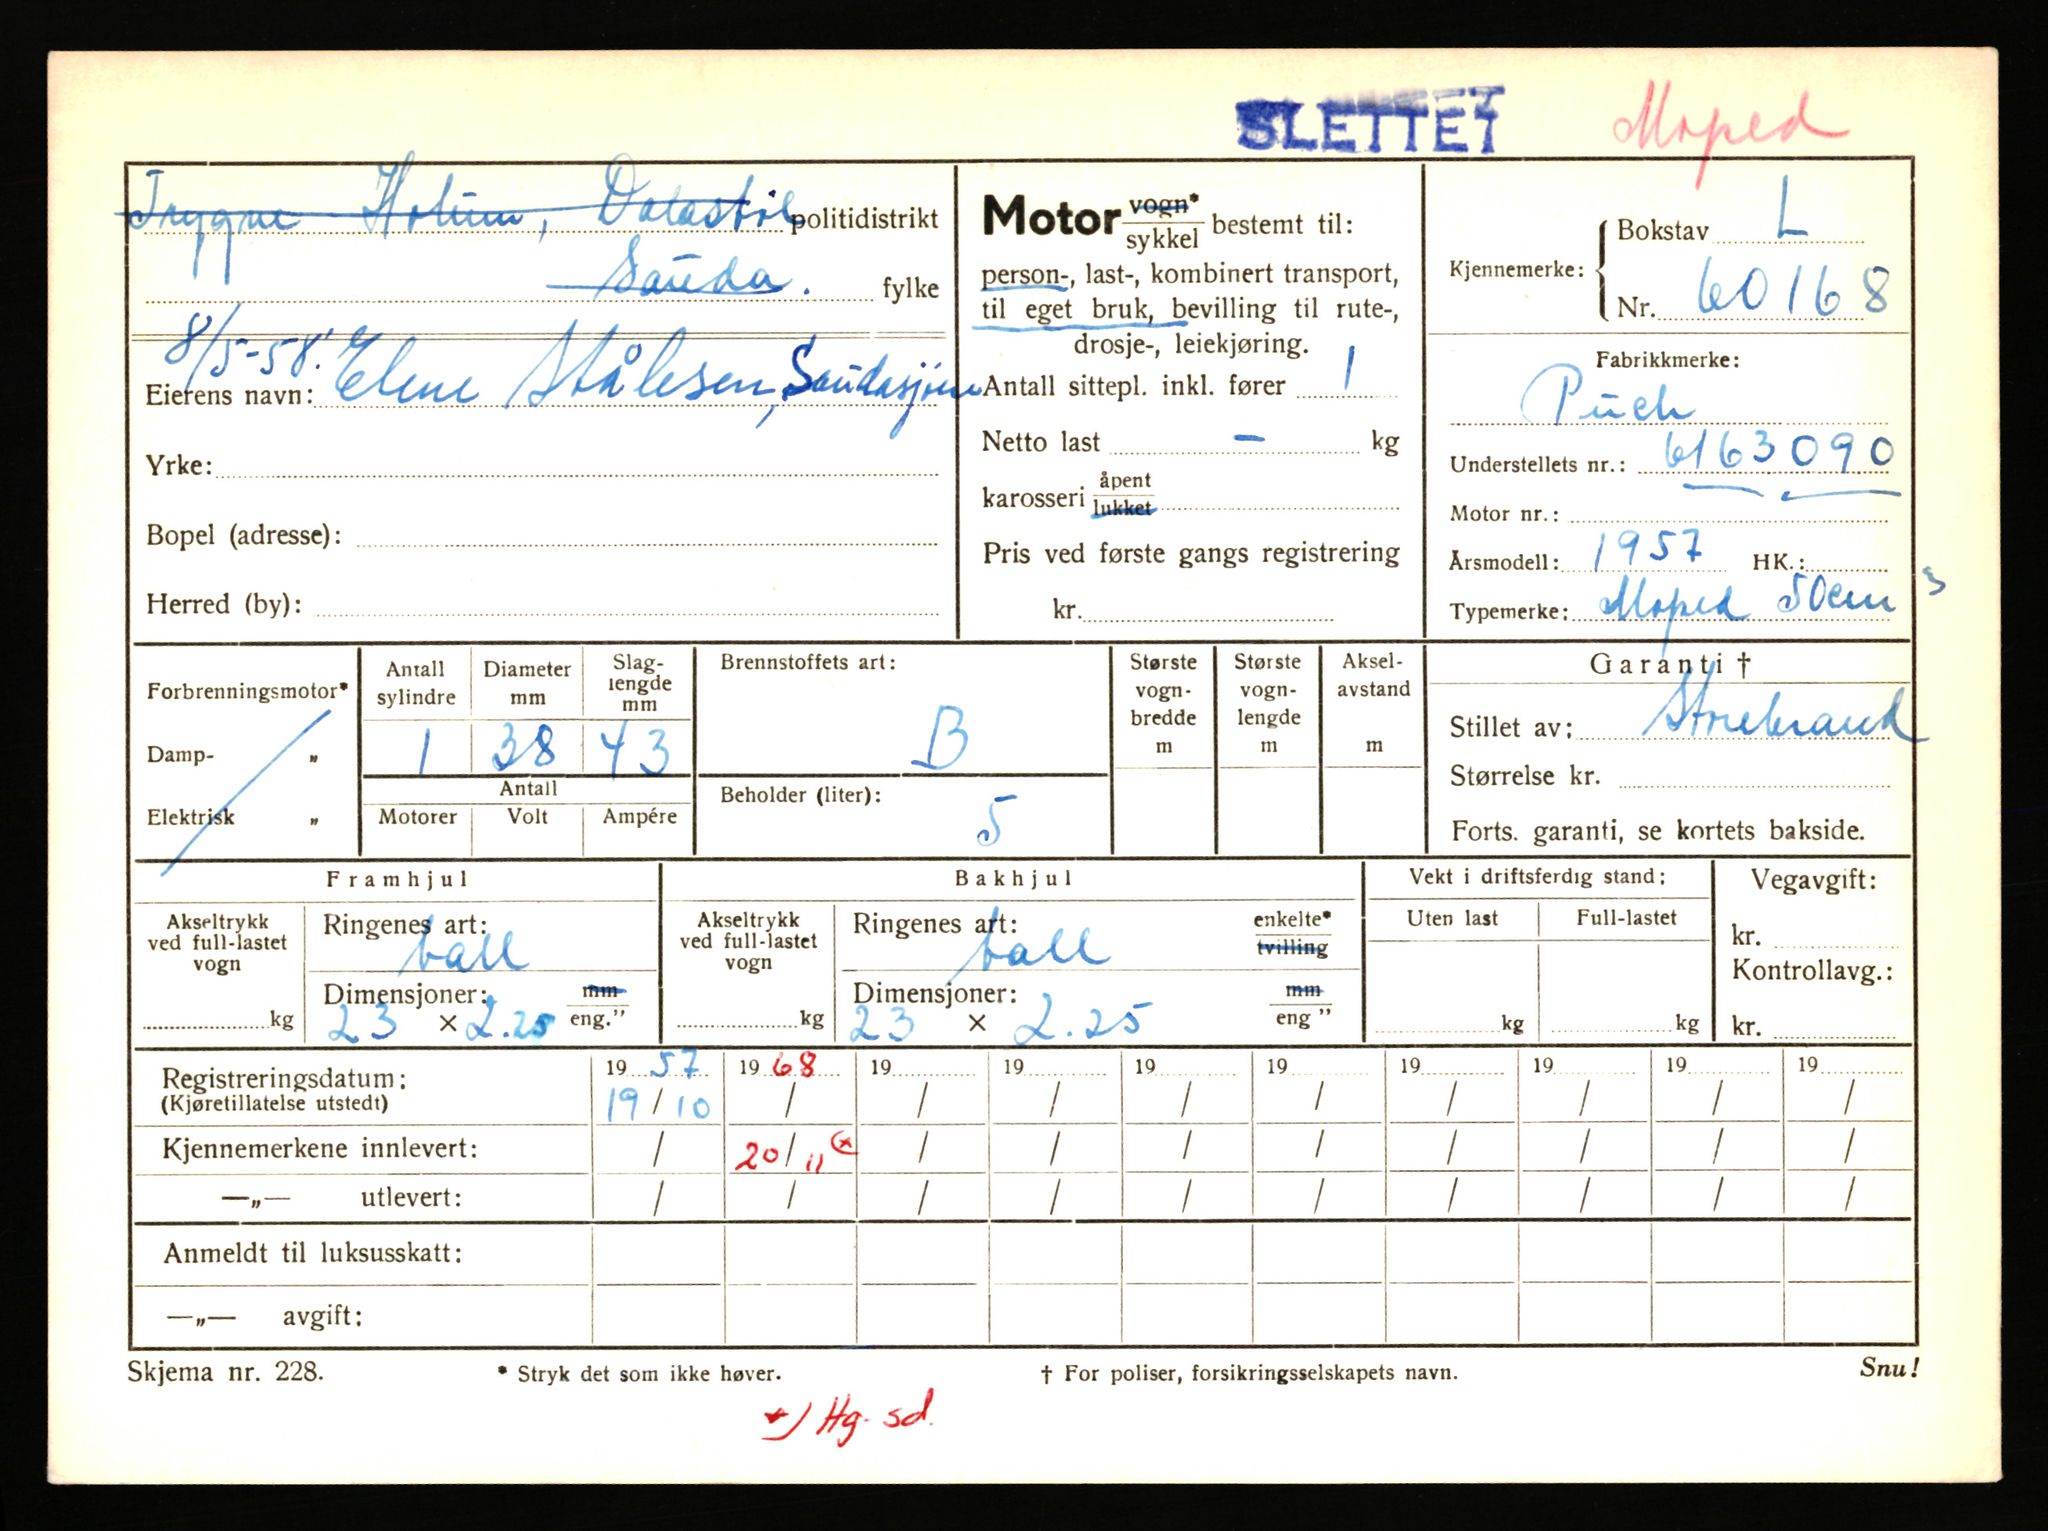 SLETTET Moped
Trygve Holum, Datastöl politidistrikt
Sauda. fylke
8/5-58.
Eierens navn: Elene Stålesen, Saudasjøen
Yrke:
Bopel (adresse):
Herred (by):
Motor vogn* / sykkel bestemt til:
person-, last-, kombinert transport,
til eget bruk, bevilling til rute-,
drosje-, leiekjøring.
Antall sittepl. inkl. fører 1
Netto last - kg
karosseri åpent / lukket
Pris ved første gangs registrering
kr.
Kjennemerke: Bokstav L
Nr. 60168
Fabrikkmerke:
Puch
Understellets nr.: 6163090
Motor nr.:
Årsmodell: 1957 HK.:
Typemerke: Moped 50cm3
Forbrenningsmotor*
Damp- „
Elektrisk „
Antall sylindre 1
Diameter mm 38
Slag-lengde mm 43
Antall
Motorer Volt Ampére
Brennstoffets art:
B
Beholder (liter):
5
Største vogn-bredde m
Største vogn-lengde m
Aksel-avstand m
Garanti †
Stillet av: Storebrand
Størrelse kr.
Forts. garanti, se kortets bakside.
Framhjul
Akseltrykk ved full-lastet vogn
kg
Ringenes art:
ball
Dimensjoner: mm / eng.”
23 × 2.25
Bakhjul
Akseltrykk ved full-lastet vogn
kg
Ringenes art: enkelte* / tvilling
ball
Dimensjoner: mm / eng ”
23 × 2.25
Vekt i driftsferdig stand:
Uten last Full-lastet
kg kg
Vegavgift:
kr.
Kontrollavg.:
kr.
19 57 19 68 19 19 19 19 19 19 19 19
Registreringsdatum: 19/10 / / / / / / / / /
(Kjøretillatelse utstedt)
Kjennemerkene innlevert: / 20/11 *) / / / / / / / /
—„— utlevert: / / / / / / / / / /
Anmeldt til luksusskatt:
—„— avgift:
Skjema nr. 228. * Stryk det som ikke høver. † For poliser, forsikringsselskapets navn. Snu!
*) Hg. sd.